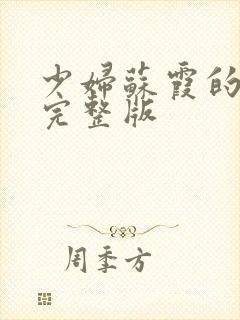 少婦蘇霞的
完整版
周季方